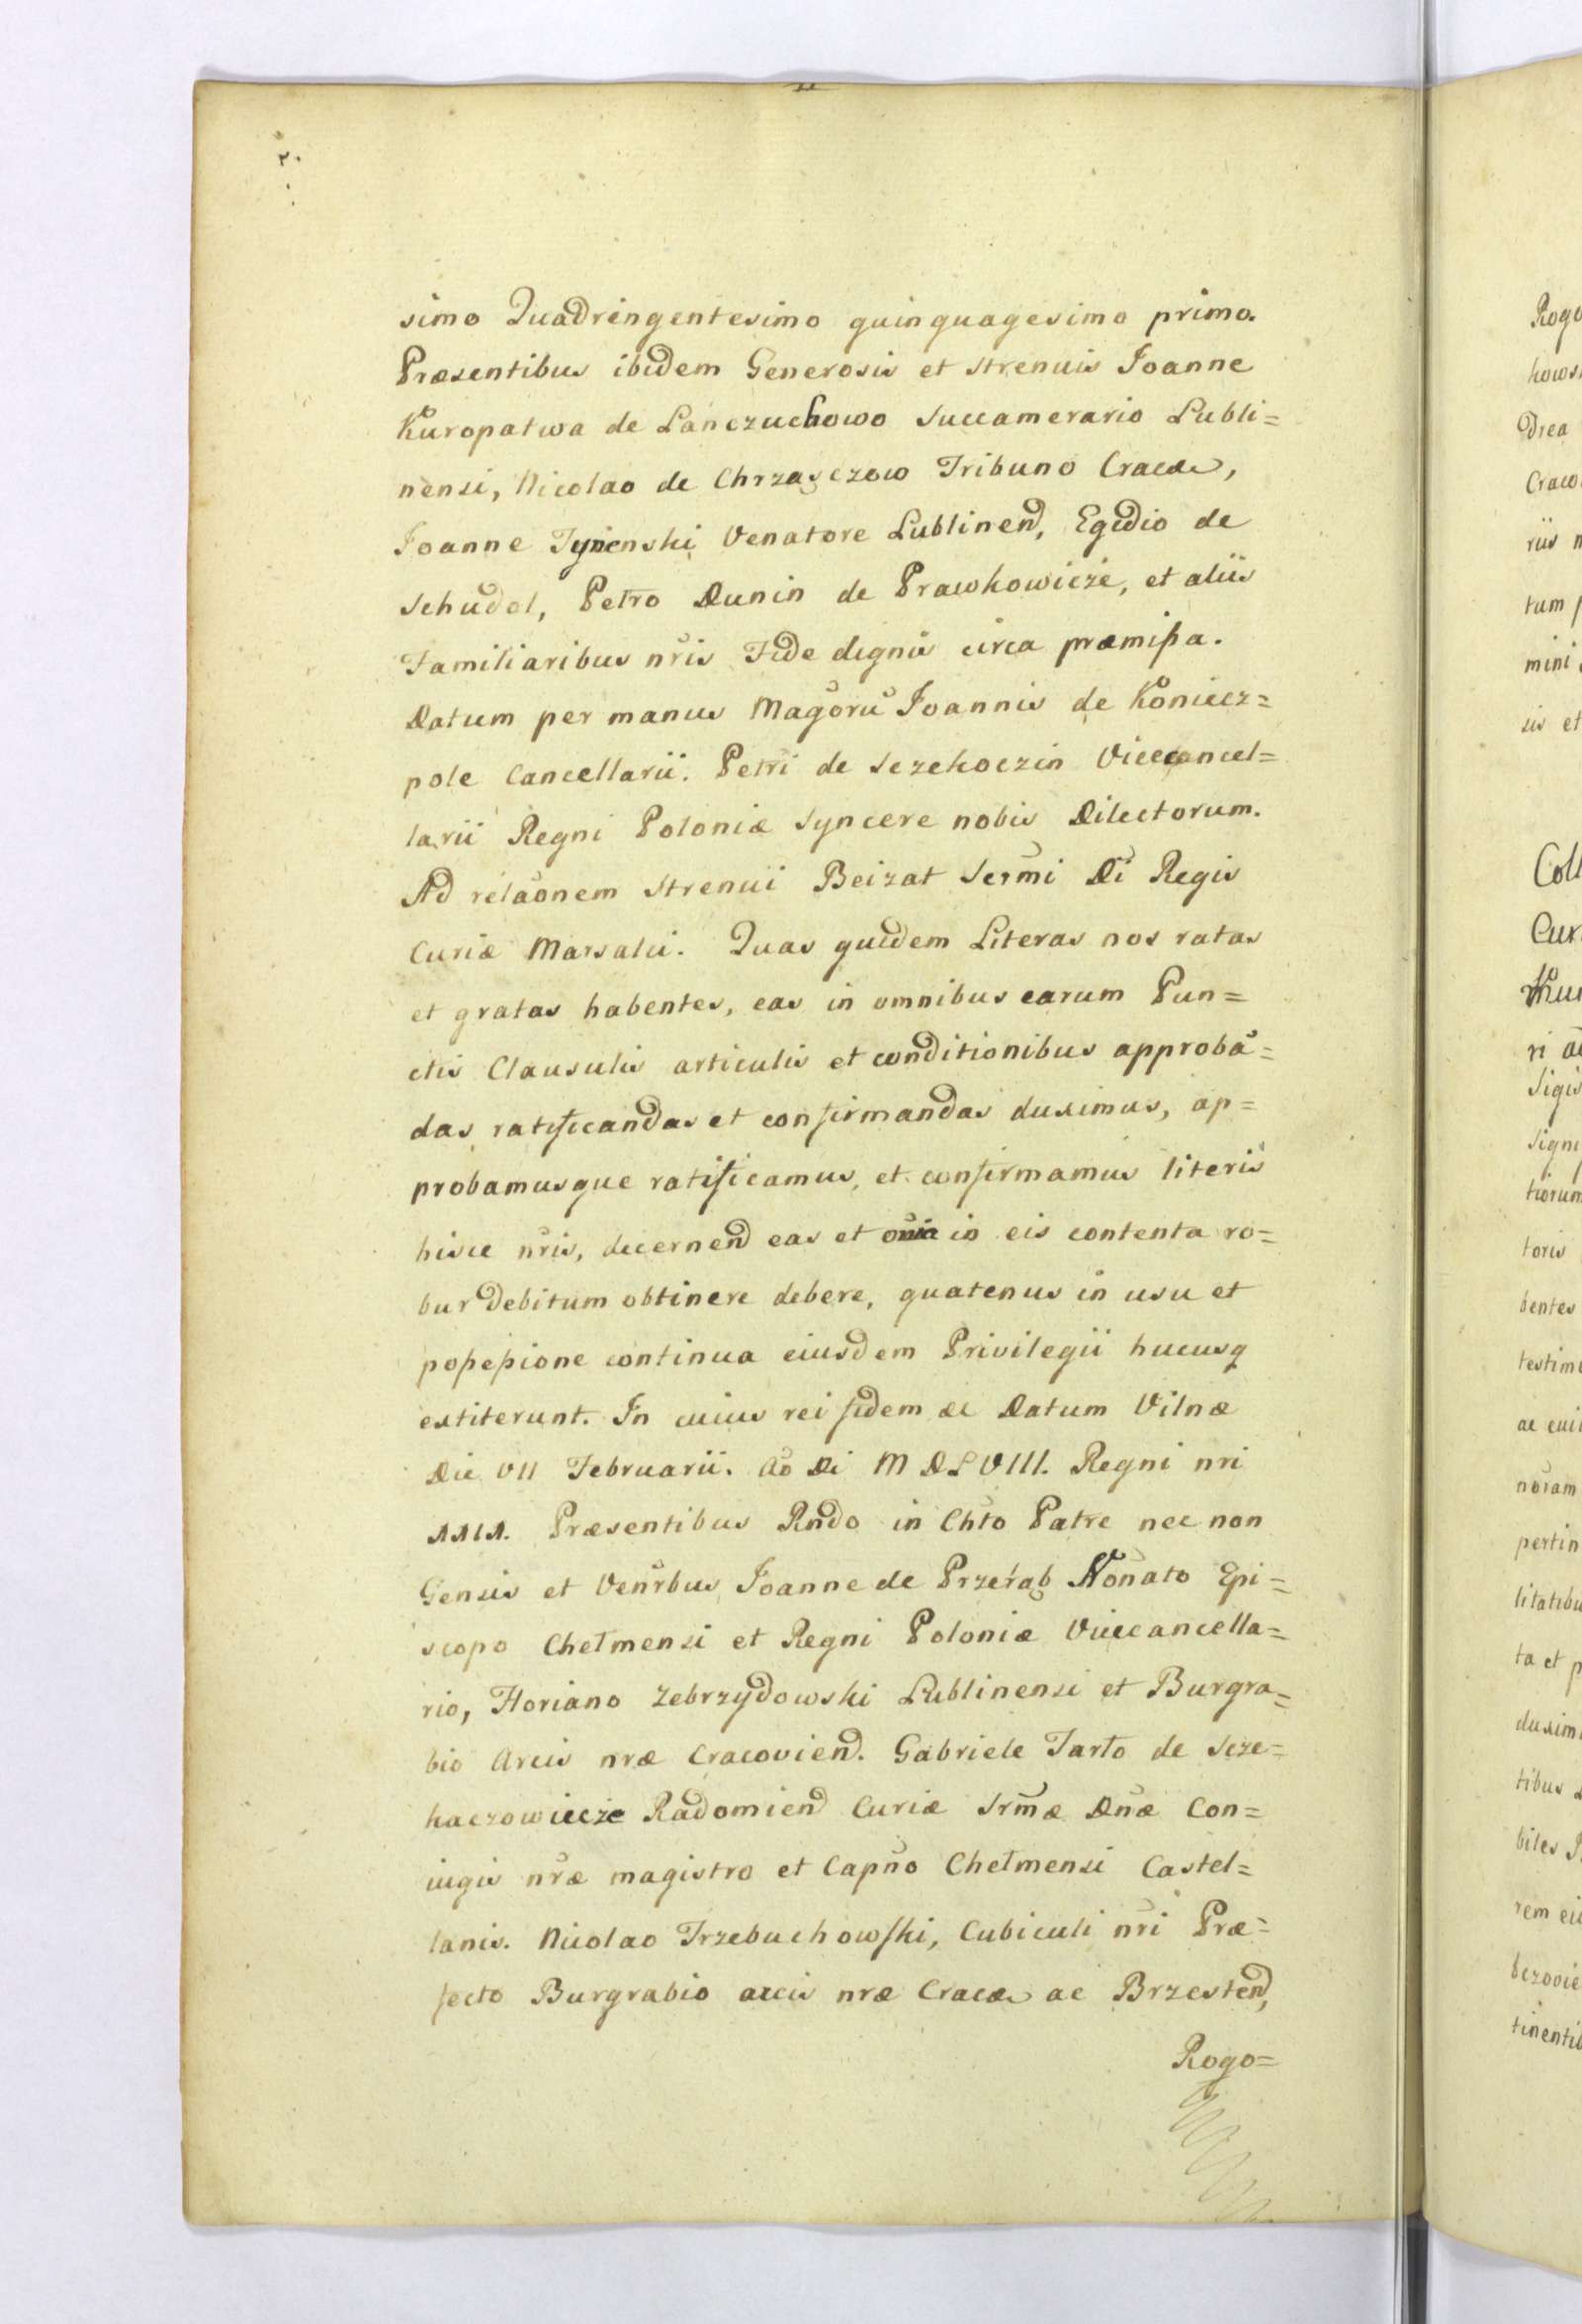 simo Quadringentesimo quinquagesimo primo.
Præsentibus ibidem Generosis et strenuis Joanne
Kuropatwa de Lanczuchowo Succamerario Lubli=
nensi, Nicolao de Chrzasczow Tribuno Cracæ,
Joanne Tynenski Venatore Lublinen, Egidio de
Schudol, Petro Dunin de Prawkowicze, et aliis
Familiaribus nris Fide dignis circa præmissa.
Datum per manus Magoru Joannis de Koniecz=
pole Cancellarii. Petri de Sczekoczin Vicecancel=
larii Regni Poloniæ Syncere nobis Dilectorum.
Ad relaonem Strenui Beizat Sermi Di Regis
Curiæ Marsalci. Quas quidem Literas nos ratas
et gratas habentes, eas in omnibus earum Pun=
ctis Clausulis articulis et conditionibus approbā=
das ratificandas et confirmandas duximus, ap=
probamusque ratificamus, et confirmamus literis
hisce nris, decernend eas et oia in eis contenta ro=
bur debitum obtinere debere, quatenus in usu et
possessione continua eiusdem Privilegii hucusq
extiterunt. In cuius rei fidem &c Datum Vilnæ
Die VII Februarii. Ao Di MDLVIII. Regni nri
Præsentibus Rndo in Chto Patre nec non
Gensis et Venrbus, Joanne de Przerąb Nonato Epi=
scopo Chełmensi et Regni Poloniæ Vicecancella=
rio, Floriano Zebrzydowski Lublinensi et Burgra=
bio Arcis nræ Cracovien. Gabriele Tarło de Scze=
kaczowicze Radomien Curiæ Srmæ Dnæ Con=
iugis nræ magistro et Capno Chełmensi Castel=
lanis. Nicolao Trzebuchowski, Cubiculi nri Præ=
fecto Burgrabio arcis nræ Cracæ ac Brzesten,
Rogo=